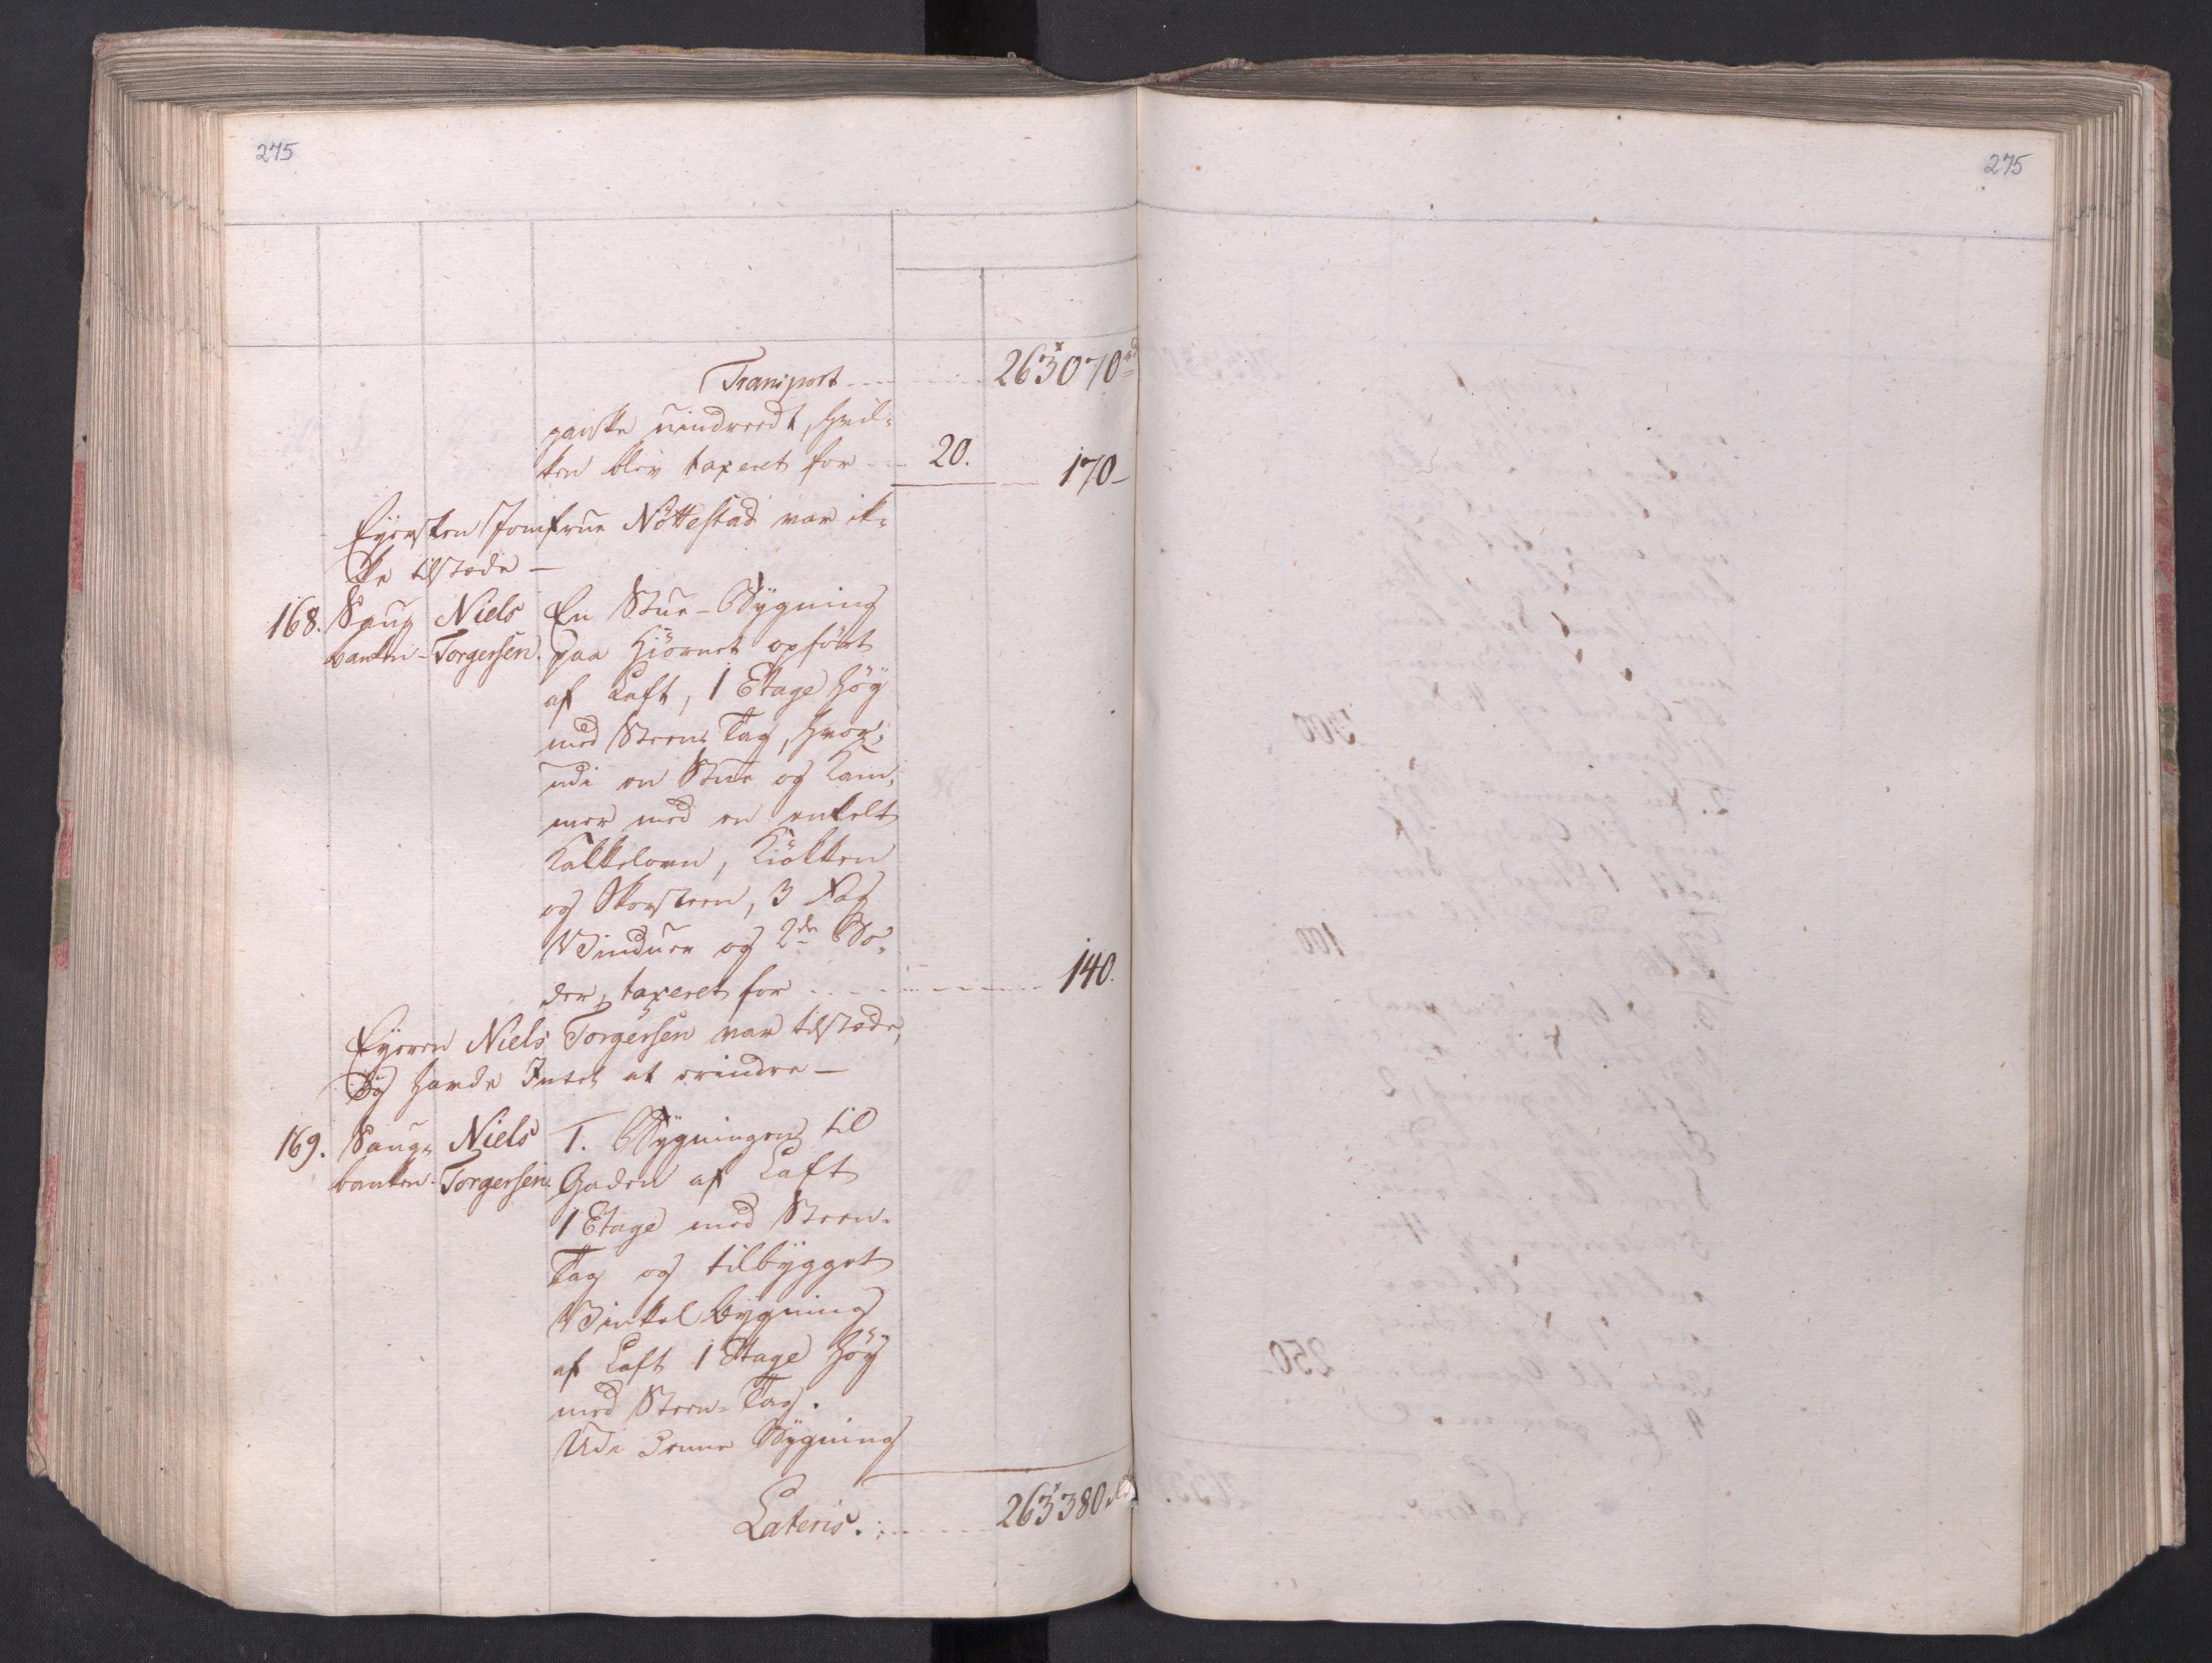 275
275
Transport - - - - - - 263070 rd
ganske uindreedt, hvil-
ken blev taxeret for - - 20. - 170 -
Eyersken Jomfrue Nöttestad var ik-
ke tilstæde -
168. Saug Niels En Stue-Bygning
banken - Torgersen. paa Hiörnet opfört
af Laft, 1 Etage höy
med Steen Tag, hvor-
udi en Stue og Kam-
mer med en enkelt
Kakkelovn, Kiökken
og Skorsteen, 3 Fag
Vinduer og 2de Bo-
der, taxeret for - - - - - - 140.
Eyeren Niels Torgersen var tilstæde,
og havde Intet at erindre -
169. Saug- Niels 1. Bygningen til
banken - Torgersen. Gaden af Laft
1 Etage med Steen-
Tag og tilbygget
Vinkel bygning
af Laft 1 Etage höy
med Steen-Tag.
Udi denne Bygning
Lateris. - - - - - 263380 rd